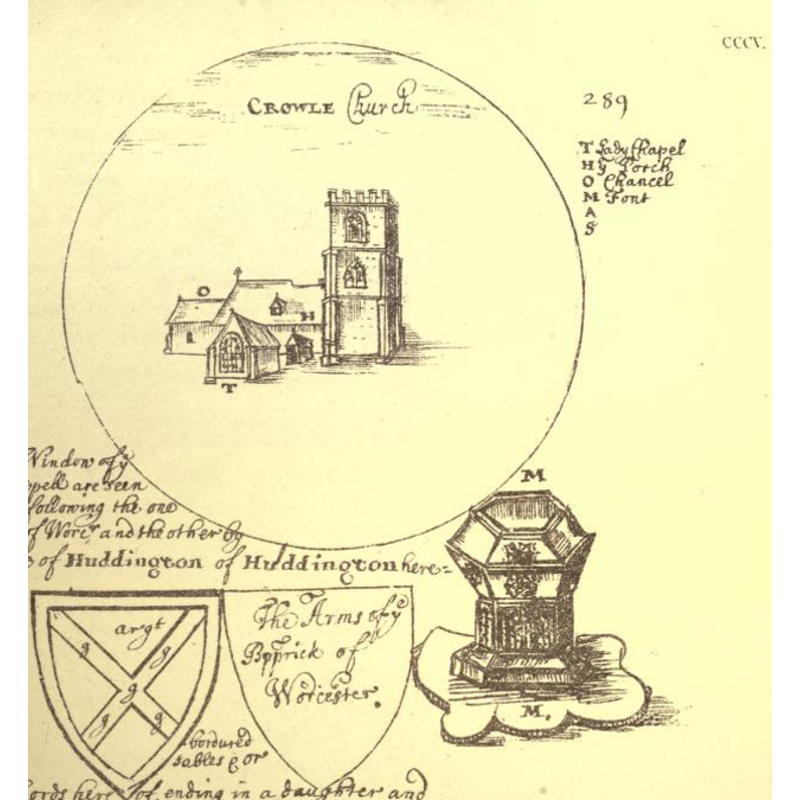 CCCV.
CROWLE Church
289
T Lady Chapel
H y Porch
O Chancel
M Font
A
S
O
H
T
Window of y
ppell are seen
following the one
of Worcr and the other by
of Huddington of Huddington here=
M
M.
argt
g
g
g
g
g
bordured
sables & or
The Arms of y
Bpprick of
Worcester.
Lords here of, ending in a daughter and